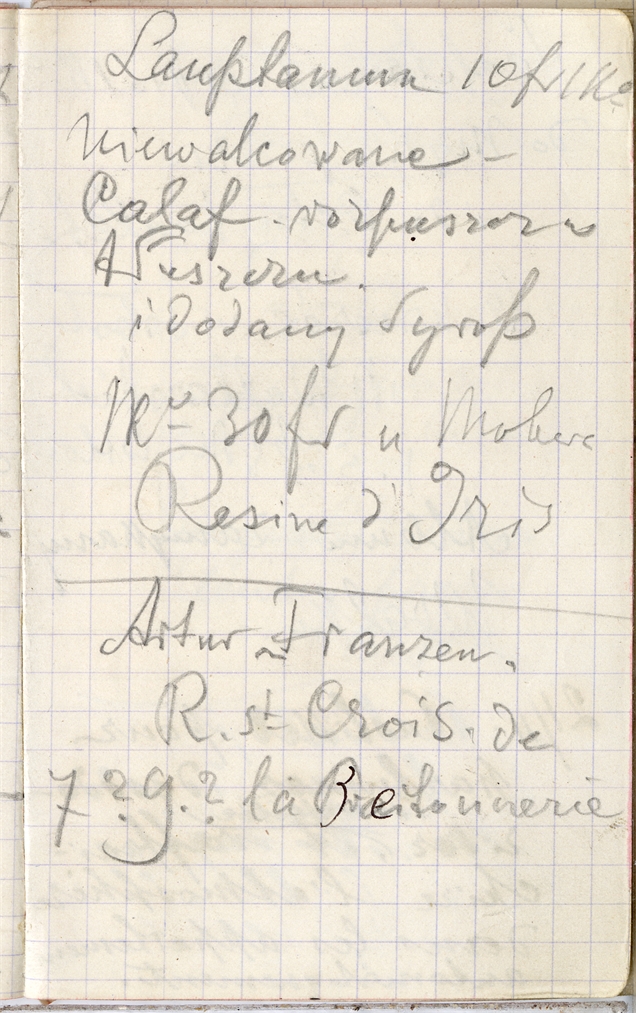 10 fr 1 Ko
niewalcowane -
Calaf. rozpuszcz. w
Tłuszczu.
i dodany Syrop
1 Ko 30 fr u
Resine d'Iris
Artur Franzen.
R. St Crois. de
7? 9.? la Bretonnerie